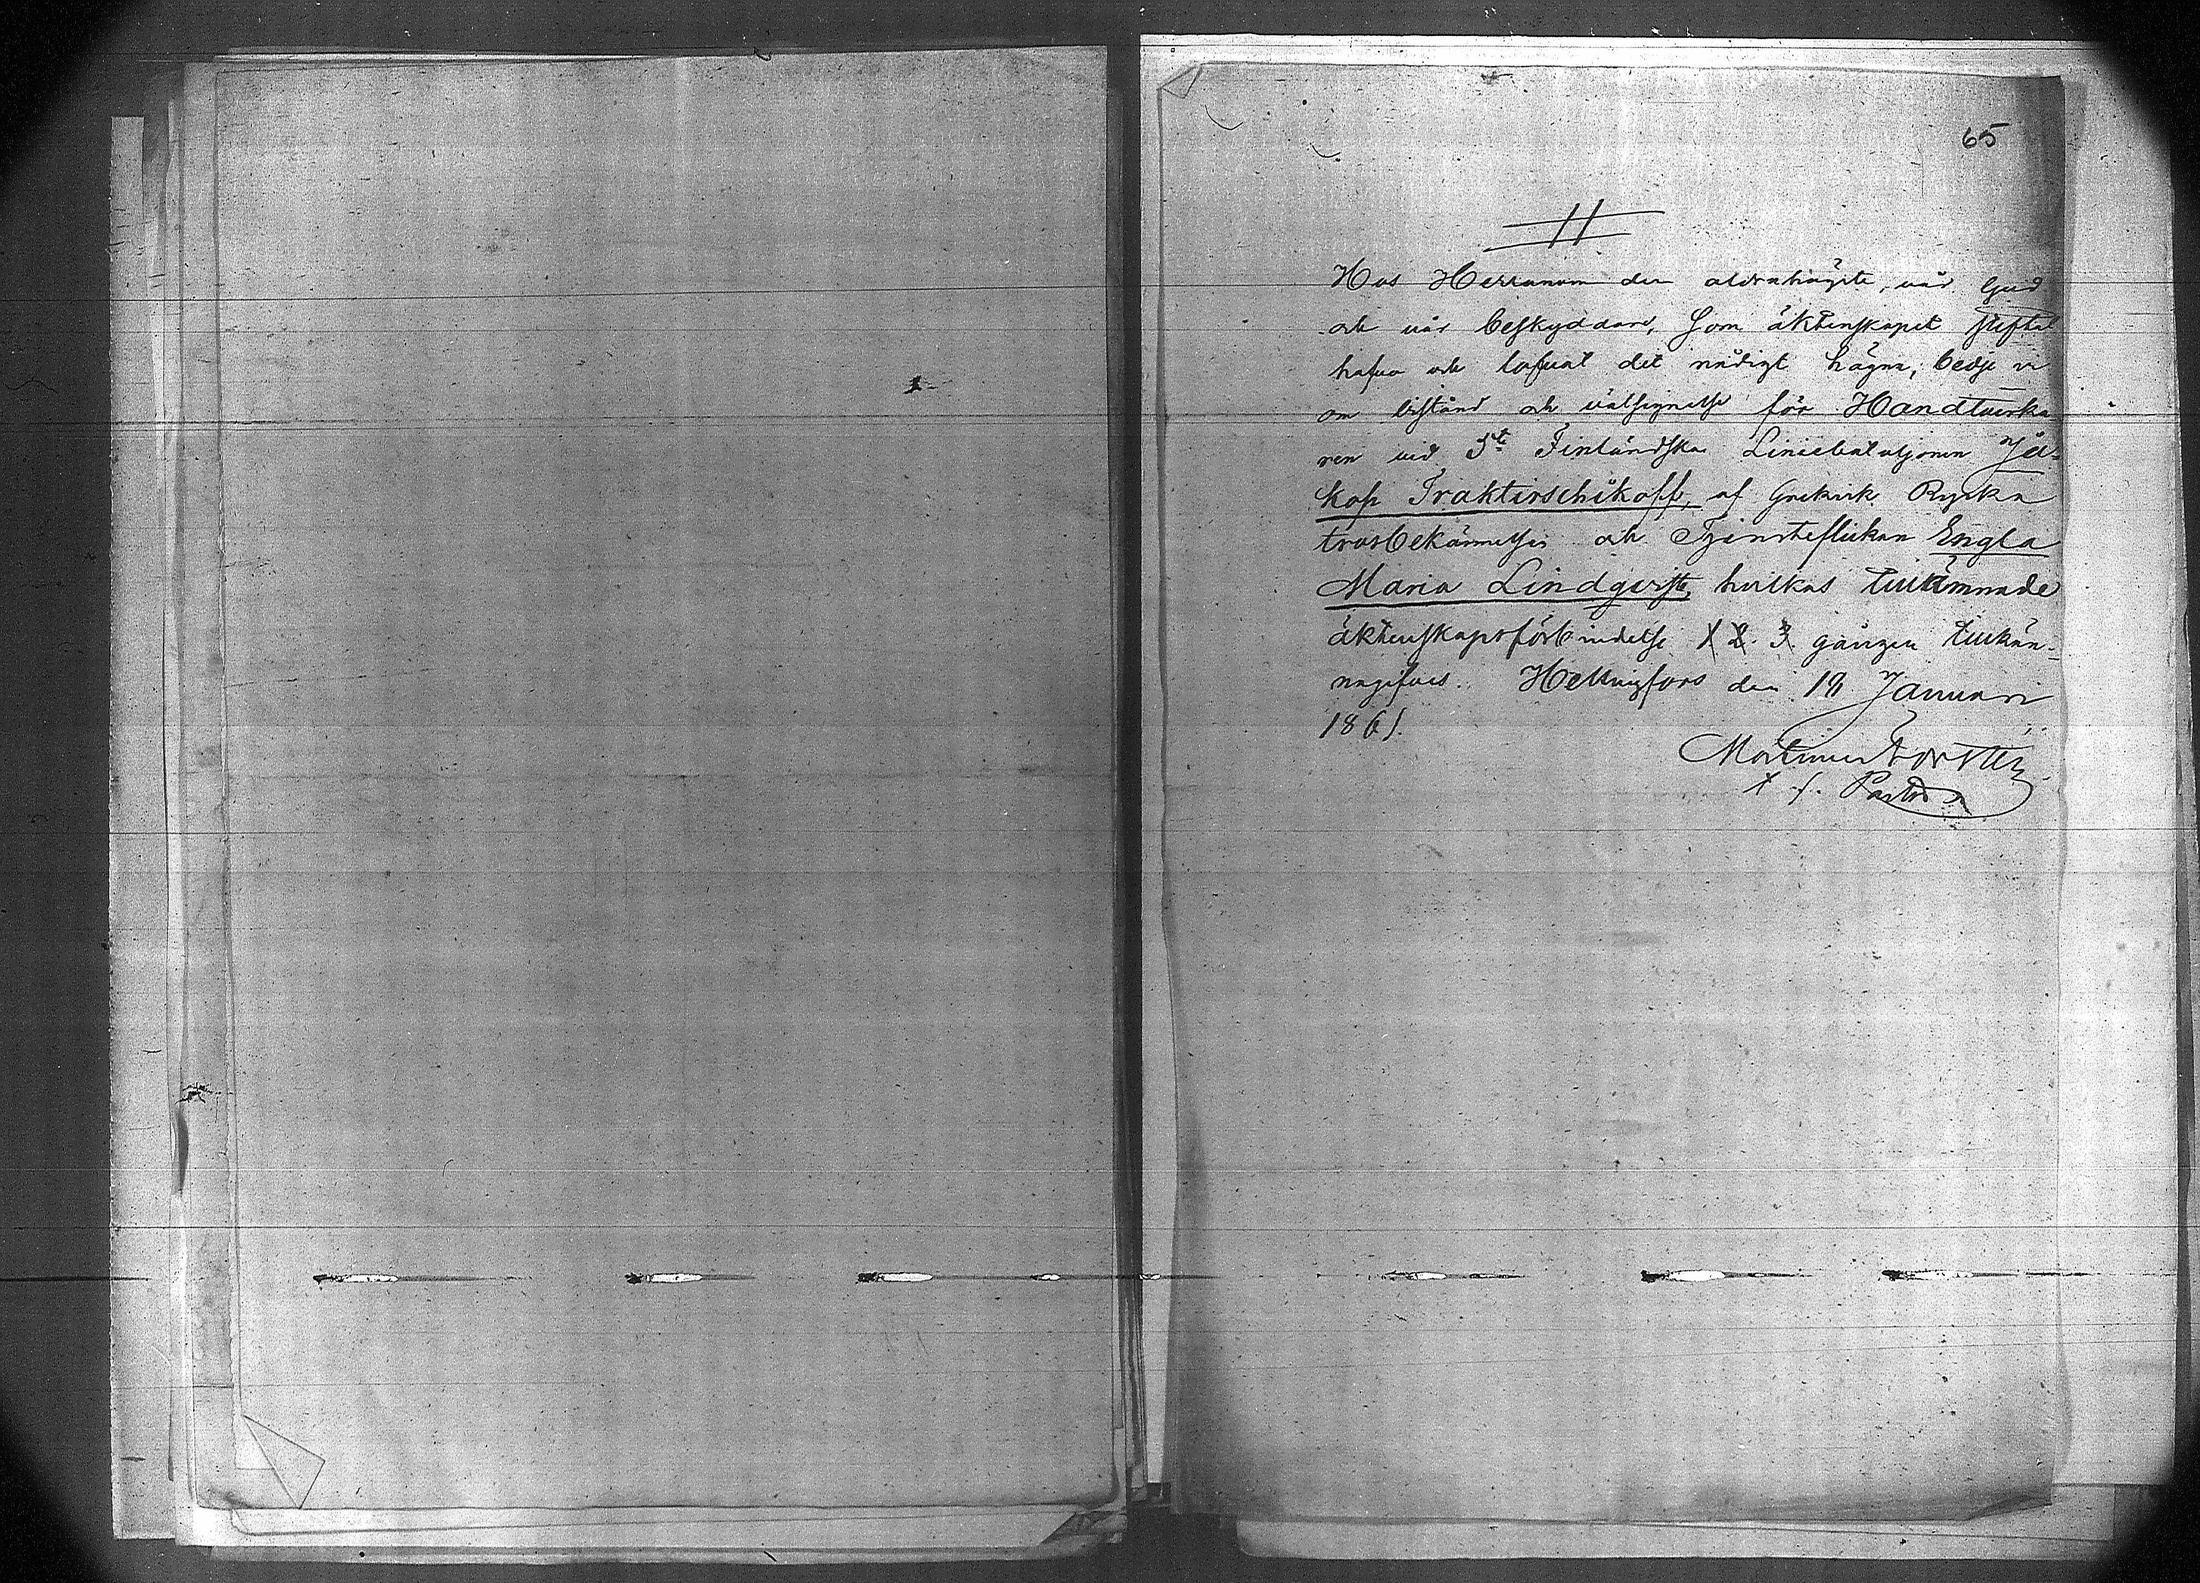 65
11
Hos Herranom den aldrahögste, vår Gud
och vår beskyddare, som äktenskapet stiftat
hafva och lofvat det nådigt hägna, bedje vi
om bistånd och välsignelse för Handtverka
ren vid 5te Finländska Liniebataljonen Ja-
kop Traktirschikoff, af Grekisk Ryska
trosbekännelsen och Tjensteflickan Engla
Maria Lindqvist, hvilkas tillämnade
äktenskapsförbindelse 1 2. 3. gången tillkän-
nagifves. Helsingfors den 19 Januari
1861.
Mortimer
t. f. Pastor